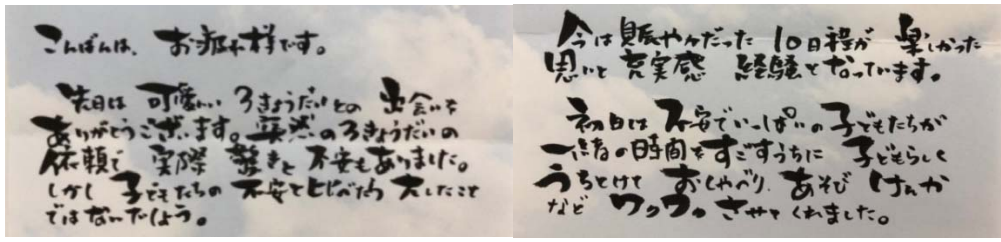 こんばんは、お疲れ様です。
先日は 可愛いい 3きょうだいとの 出会いを
ありがとうございます。突然の3きょうだいの
依頼で 実際 驚きと 不安もありました。
しかし 子どもたちの 不安とヒじべたら 大したこと
ではないでしょう。
今は賑やかだった 10日程が 楽しかった
思いと 充実感 経験となっています。
初日は 不安でいっぱいの 子どもたちが
一緒の時間をすごすうちに 子どもらしく
うちとけて おしゃべり、あそび けんか
など ワクワク させてくれました。